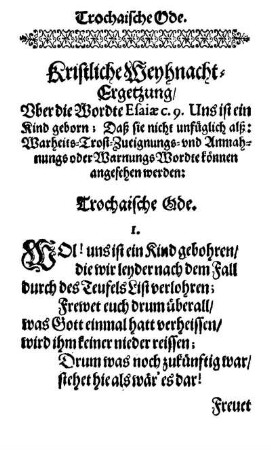 Trochaische Ode.
Kristliche Weyhnacht-
Ergetzung/
Vber die Wordte Esaiæ c. 9. Uns ist ein
Kind geborn; Daß sie nicht unfüglich alß:
Warheits-Trost-Zueignungs-vnd Anmah-
nungs oder Warnungs Wordte können
angesehen werden:
Trochaische Ode.
1.
WOl! uns ist ein Kind gebohren/
die wir leyder nach dem Fall
durch des Teufels List verlohren;
Frewet euch drum überall/
was Gott einmal hatt verheissen/
wird ihm keiner nieder reissen;
Drum was noch zukünftig war/
stehet hie als wär' es dar!
Freuet